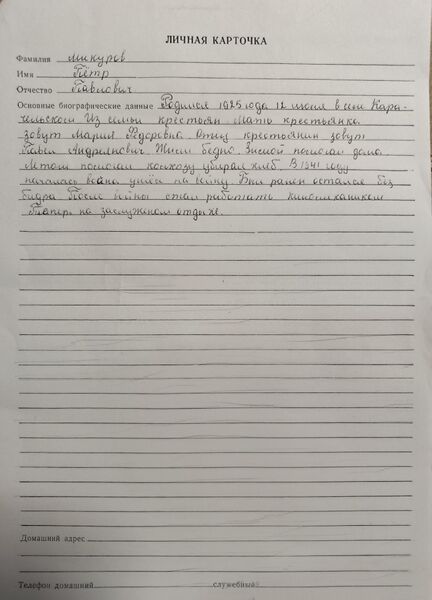 ЛИЧНАЯ КАРТОЧКА
Фамилия Микуров
Имя Пётр
Отчество Павлович
Основные биографические данные Родился 1926 года 12 июня в селе Кара-
гельском Из семьи крестьян Мать крестьянка
зовут Мария Фёдоровна Отец крестьянин зовут
Павел Андриянович Жили бедно Зимой помогал дома
Летом помогал колхозу убирал хлеб. В 1941 году
началась война ушёл на войну. Был ранен остался без
бедра После войны стал работать киномехаником
Теперь на заслуженом отдыхе.
Домашний адрес
Телефон домашний служебный